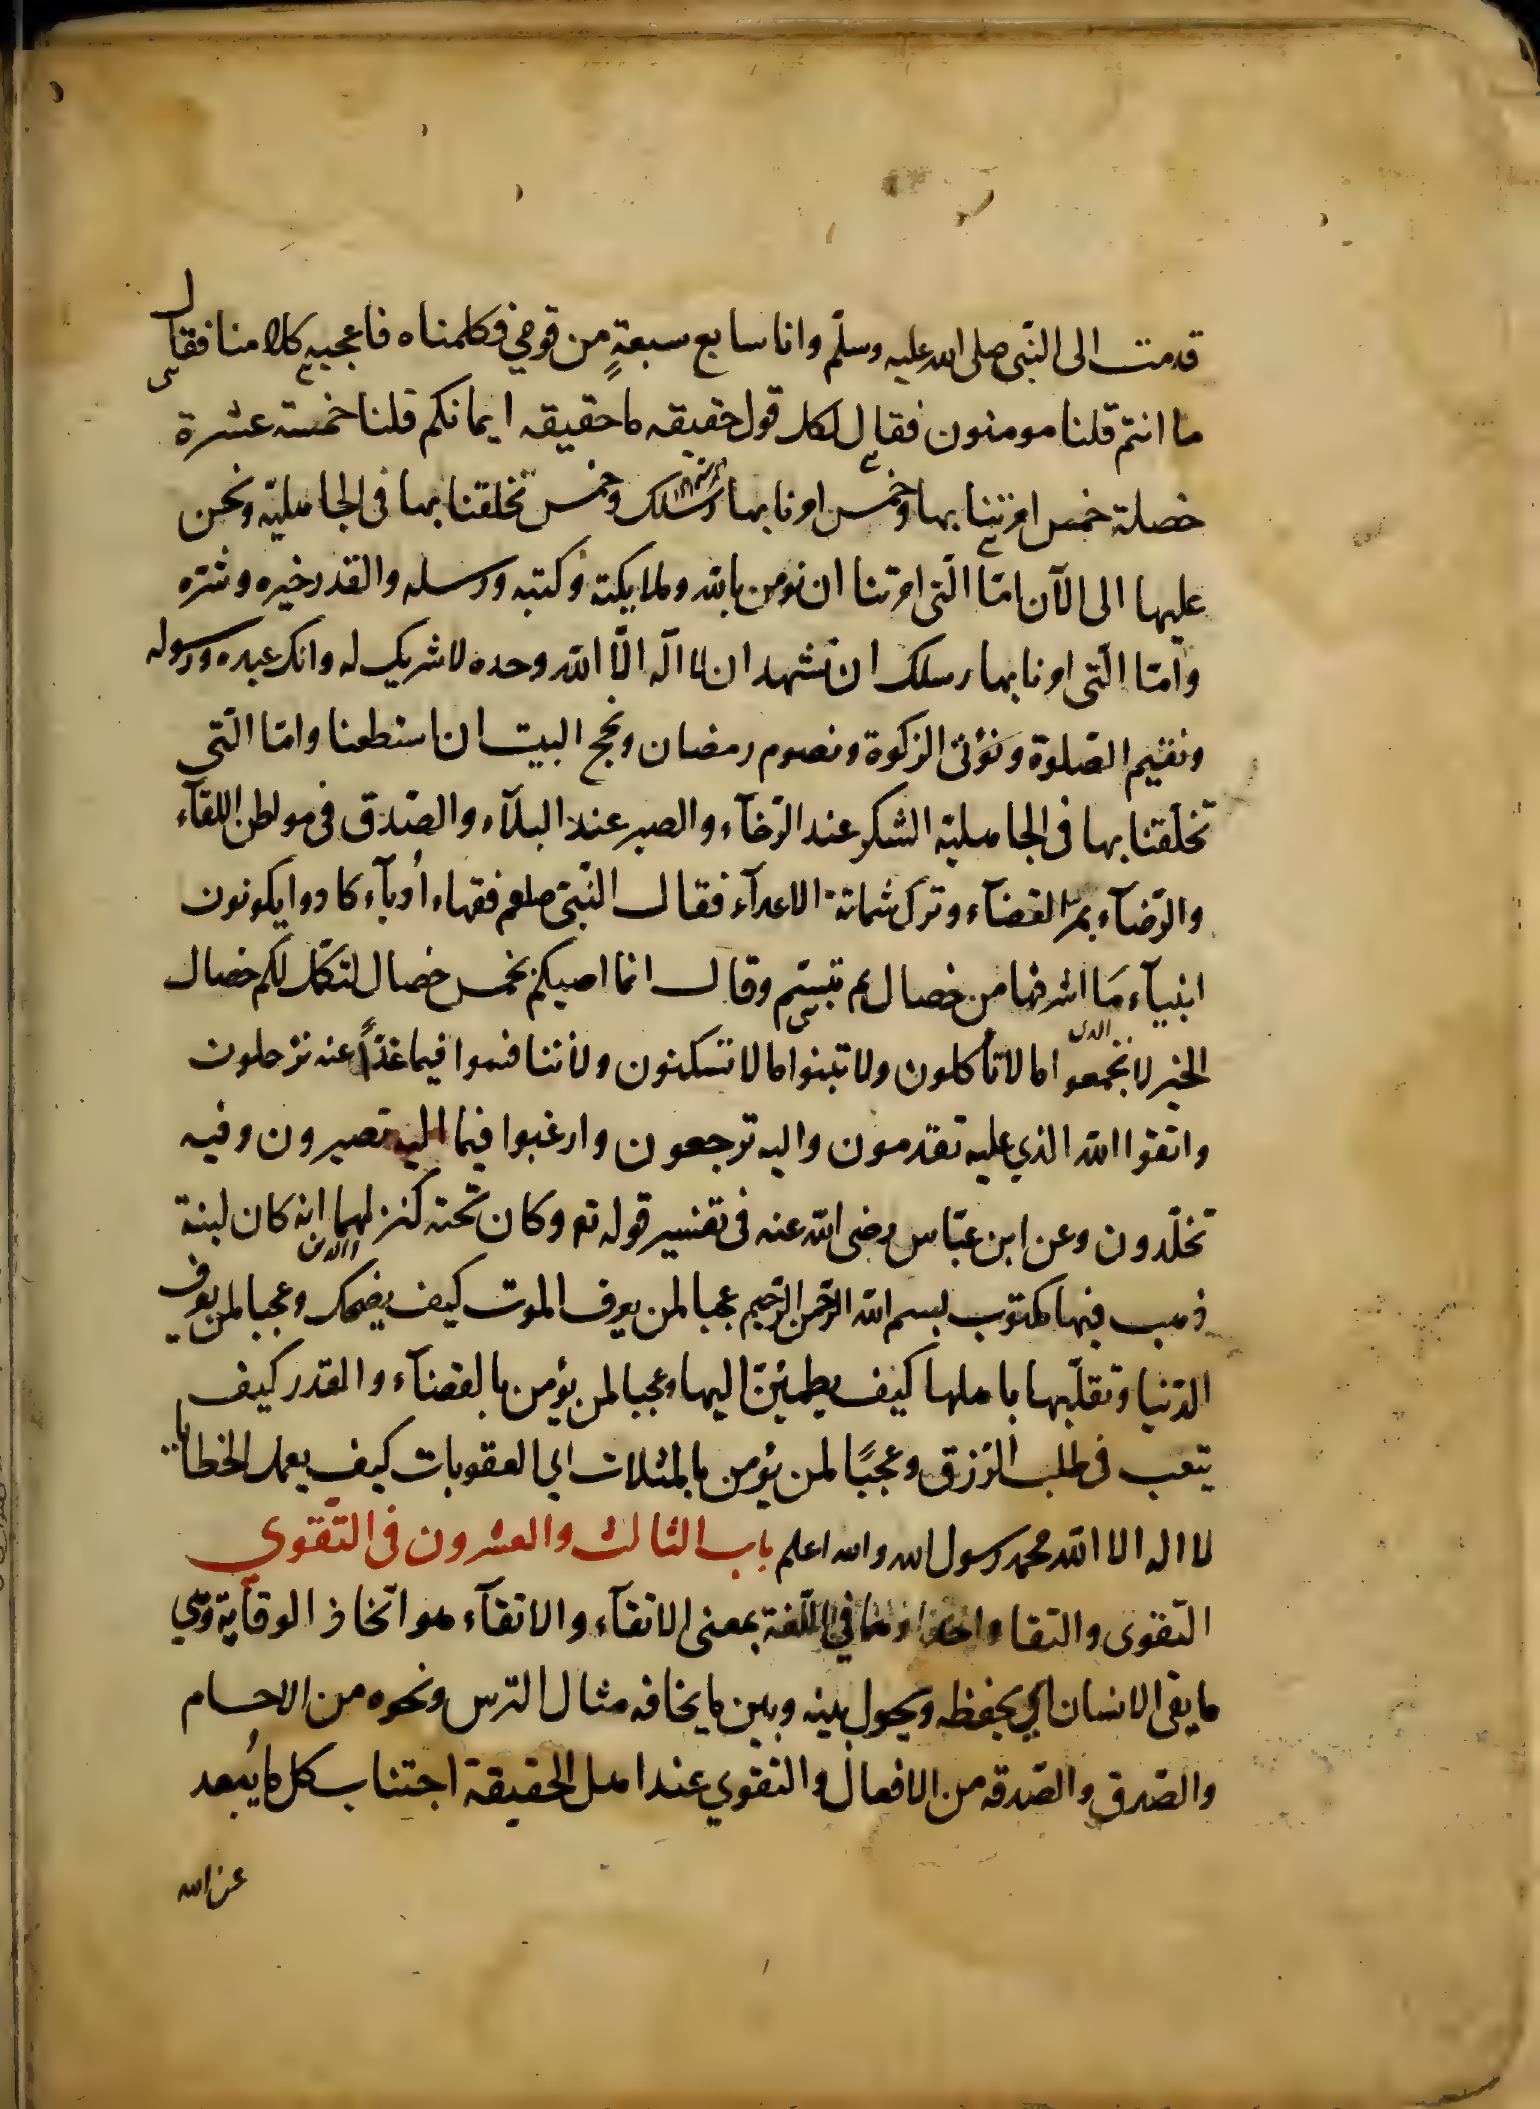 قدمت الى النّبى صلى الله عليه وسلّم وانا سابع سبعةٍ من قومي فكلمناه فاعجبه كلامنا فقال
ما انتم قلنا مومنون فقال لكل قول حقيقه ما حقيقه ايمانكم قلنا خمسة عشرة
خصلة خمس امرتنا بها وخمس امرنا بها رسلك وخمس تخلقنا بها فى الجاهليّه ونحن
عليها الى الآن امّا الّتى امرتنا ان نومن بالله وملايكته وكتبه ورسله والقدر خيره وشرّه
وامّا الّتى امرنا بها رسلك ان نشهد ان لا اله الّا الله وحده لا شريك له وانك عبده ورسوله
ونقيم الصّلوة ونؤتى الزكوة ونصوم رمضان ونحج البيت ان استطعنا وامّا الّتى
تخلّقنا بها فى الجاهليّه الشكر عند الرّخآء والصبر عند البلآء والصّدق فى مواطن اللقآء
والرّضآء بمرّ القضآء وترك شماتة الاعدآء فقال النّبىّ صلعم فقهاء اُدبآء كادوا يكونون
انبيآء مَا اشرفها من خصال ثم تبسّم وقال انما اوصيكم بخمس خصال لتكمّل لكم خصال
الخير لا تجمعوا ما لا تأكلون ولا تبنوا ما لا تسكنون ولا تنافسوا فيما غدًا عنه ترحلون
واتقوا الله الذي عليه تقدمون واليه ترجعون وارغبوا فيما اليه تصيرون وفيه
تخلّدون وعن ابن عبّاس رضى الله عنه فى تفسير قوله تع وكان تحته كنز لهما انه كان لبنة
ذهب فيها مكتوب بسم الله الرّحمن الرّحيم عجبا لمن يعرف الموت كيف يضحك وعجبا لمن يعرف
الدّنيا وتقلّبها باهلها كيف يطمئنّ اليها وعجبا لمن يؤمن بالقضآء والقدر كيف
يتعب فى طلب الرّزق وعجبًا لمن يؤمن بالمثلات اي العقوبات كيف يعمل الخطايا
لا اله الا الله محمد رسول الله والله اعلم باب الثالث والعشرون فى التّقوي
التّقوى والتقا واحد وهما في اللّغة بمعنى الاتقآء والاتقآء هو اتّخاذ الوقآية وهي
ما يقى الانسان اي يحفظه ويحول بينه وبين ما يخافه مثال الترس ونحوه من الاجسام
والصّدق والصّدقه من الافعال والتقوي عند اهل الحقيقة اجتناب كل ما يُبعد
عن الله